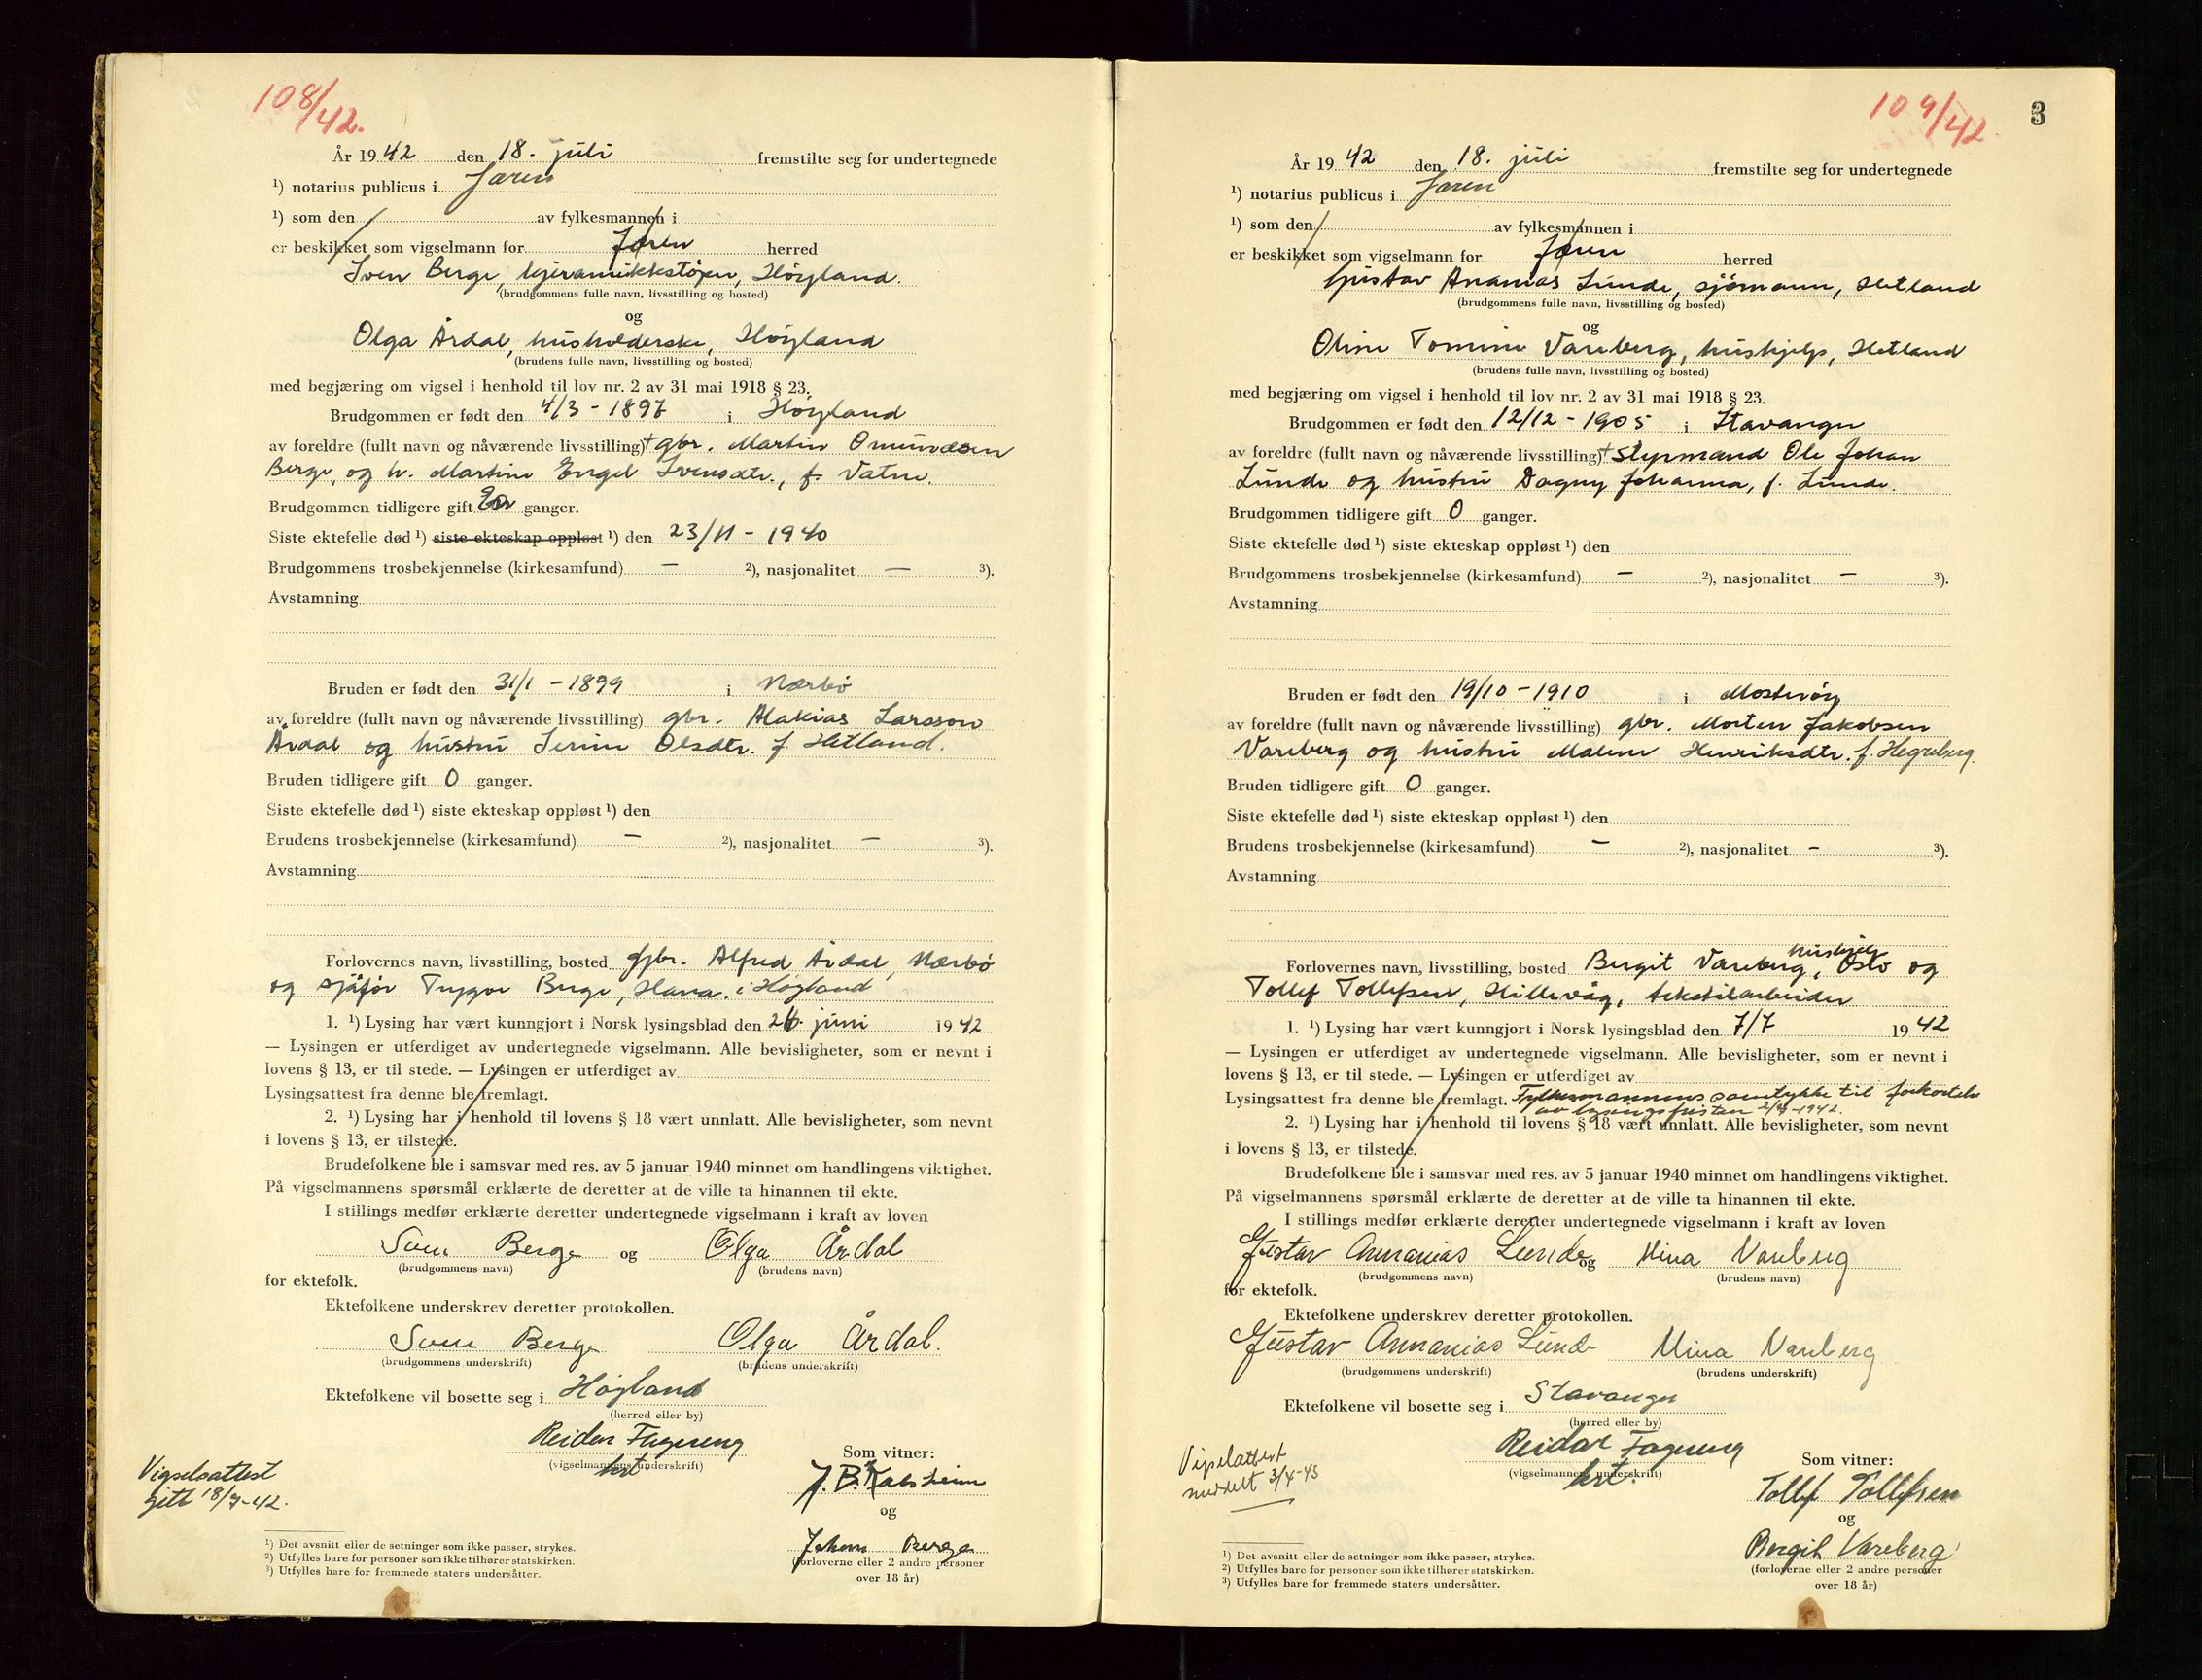 108/42.
År 1942 den 18. juli fremstilte seg for undertegnede
¹) notarius publicus i Jæren
¹) som den av fylkesmannen i
er beskikket som vigselmann for Jæren herred
Sven Berge, Høyland.
(brudgommens fulle navn, livsstilling og bosted)
og
Olga Årdal, husholderske, Høyland
(brudens fulle navn, livsstilling og bosted)
med begjæring om vigsel i henhold til lov nr. 2 av 31 mai 1918 § 23.
Brudgommen er født den 4/3 - 1897 i Høyland
av foreldre (fullt navn og nåværende livsstilling) + gbr. Martin Omundsen
Berge, og h. Martine Engel Svensdtr., f. Vatne.
Brudgommen tidligere gift ganger.
Siste ektefelle død ¹) siste ekteskap oppløst ¹) den 23/11 - 1940
Brudgommens trosbekjennelse (kirkesamfund) — ²), nasjonalitet — ³).
Avstamning
Bruden er født den 31/1 - 1899 i Nærbø
av foreldre (fullt navn og nåværende livsstilling) gbr. Malakias Larsson
Årdal og hustru Serine Olsdtr. f. Hetland.
Bruden tidligere gift 0 ganger.
Siste ektefelle død ¹) siste ekteskap oppløst ¹) den
Brudens trosbekjennelse (kirkesamfund) — ²), nasjonalitet — ³).
Avstamning
Forlovernes navn, livsstilling, bosted gbr. Alfred Årdal, Nærbø
og sjåfør Trygve Berge, Hana. i Høyland
1. ¹) Lysing har vært kunngjort i Norsk lysingsblad den 26 juni 1942
— Lysingen er utferdiget av undertegnede vigselmann. Alle bevisligheter, som er nevnt i
lovens § 13, er til stede. — Lysingen er utferdiget av
Lysingsattest fra denne ble fremlagt.
2. ¹) Lysing har i henhold til lovens § 18 vært unnlatt. Alle bevisligheter, som nevnt
i lovens § 13, er tilstede.
Brudefolkene ble i samsvar med res. av 5 januar 1940 minnet om handlingens viktighet.
På vigselmannens spørsmål erklærte de deretter at de ville ta hinannen til ekte.
I stillings medfør erklærte deretter undertegnede vigselmann i kraft av loven
Sven Berge og Olga Årdal
(brudgommens navn) (brudens navn)
for ektefolk.
Ektefolkene underskrev deretter protokollen.
Sven Berge Olga Årdal.
(brudgommens underskrift) (brudens underskrift)
Ektefolkene vil bosette seg i Høyland
(herred eller by)
Reidar Fagereng
(vigselmannens underskrift)
krst.
Som vitner:
og
Johan Berge
(forloverne eller 2 andre personer
over 18 år)
Vigselsattest
gitt 18/7-42.
¹) Det avsnitt eller de setninger som ikke passer, strykes.
²) Utfylles bare for personer som ikke tilhører statskirken.
³) Utfylles bare for fremmede staters undersåtter.
109/42
3
År 1942 den 18. juli fremstilte seg for undertegnede
¹) notarius publicus i Jæren
¹) som den av fylkesmannen i
er beskikket som vigselmann for Jæren herred
Gustav Ananias Lunde, sjømann, Hetland
(brudgommens fulle navn, livsstilling og bosted)
og
Oline Tomine Vareberg, hushjelp, Hetland
(brudens fulle navn, livsstilling og bosted)
med begjæring om vigsel i henhold til lov nr. 2 av 31 mai 1918 § 23.
Brudgommen er født den 12/12 - 1905 i Stavanger
av foreldre (fullt navn og nåværende livsstilling) + styrmand Ole Johan
Lunde og hustru Dagny Johanna, f. Lunde.
Brudgommen tidligere gift 0 ganger.
Siste ektefelle død ¹) siste ekteskap oppløst ¹) den
Brudgommens trosbekjennelse (kirkesamfund) — ²), nasjonalitet — ³).
Avstamning
Bruden er født den 19/10 - 1910 i Mosterøy
av foreldre (fullt navn og nåværende livsstilling) gbr. Morten Jakobsen
Vareberg og hustru Malene Henriksdtr. f. Hegreberg.
Bruden tidligere gift 0 ganger.
Siste ektefelle død ¹) siste ekteskap oppløst ¹) den
Brudens trosbekjennelse (kirkesamfund) — ²), nasjonalitet — ³).
Avstamning
hushjelp
Forlovernes navn, livsstilling, bosted Bergit Vareberg, Oslo og
Tollef Tollefsen, Hillevåg, tekstilarbeider
1. ¹) Lysing har vært kunngjort i Norsk lysingsblad den 7/7 1942
— Lysingen er utferdiget av undertegnede vigselmann. Alle bevisligheter, som er nevnt i
lovens § 13, er til stede. — Lysingen er utferdiget av
Lysingsattest fra denne ble fremlagt. Fylkesmannens samtykke til forkortelse
av lysingsfristen 2/7-1942.
2. ¹) Lysing har i henhold til lovens § 18 vært unnlatt. Alle bevisligheter, som nevnt
i lovens § 13, er tilstede.
Brudefolkene ble i samsvar med res. av 5 januar 1940 minnet om handlingens viktighet.
På vigselmannens spørsmål erklærte de deretter at de ville ta hinannen til ekte.
I stillings medfør erklærte deretter undertegnede vigselmann i kraft av loven
Gustav Annanias Lunde og Mina Vareberg
(brudgommens navn) (brudens navn)
for ektefolk.
Ektefolkene underskrev deretter protokollen.
Gustav Annanias Lunde Mina Vareberg
(brudgommens underskrift) (brudens underskrift)
Ektefolkene vil bosette seg i Stavanger
(herred eller by)
Reidar Fagereng
(vigselmannens underskrift)
krst.
Som vitner:
Tollef Tollefsen
og
Bergit Vareberg
(forloverne eller 2 andre personer
over 18 år)
Vigselattest
meddelt 3/4-43
¹) Det avsnitt eller de setninger som ikke passer, strykes.
²) Utfylles bare for personer som ikke tilhører statskirken.
³) Utfylles bare for fremmede staters undersåtter.